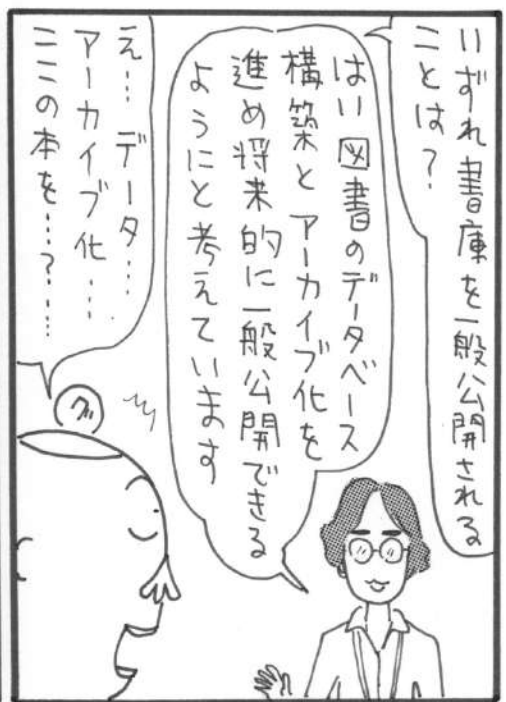 いずれ書庫を一般公開される
ことは？
はい図書のデータベース
構築とアーカイブ化を
進め将来的に一般公開できる
ようにと考えています
え…データ…
アーカイブ化…
ここの本を…？…
グ